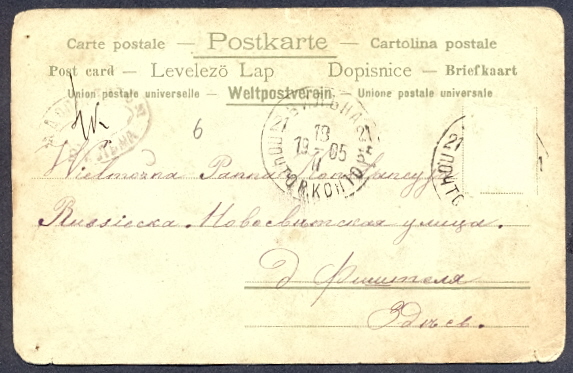 Carte postale — Postkarte — Cartolina postale
Post card — Levelező Lap Dopisnice — Briefkaart
Union postale universelle — Weltpostverein — Unione postale universale
6
21 21
19
19 05
II
21
Wielmożna Panna
Russiecka. Новосвитская улица.
д. Фишителя
Здѣсь.